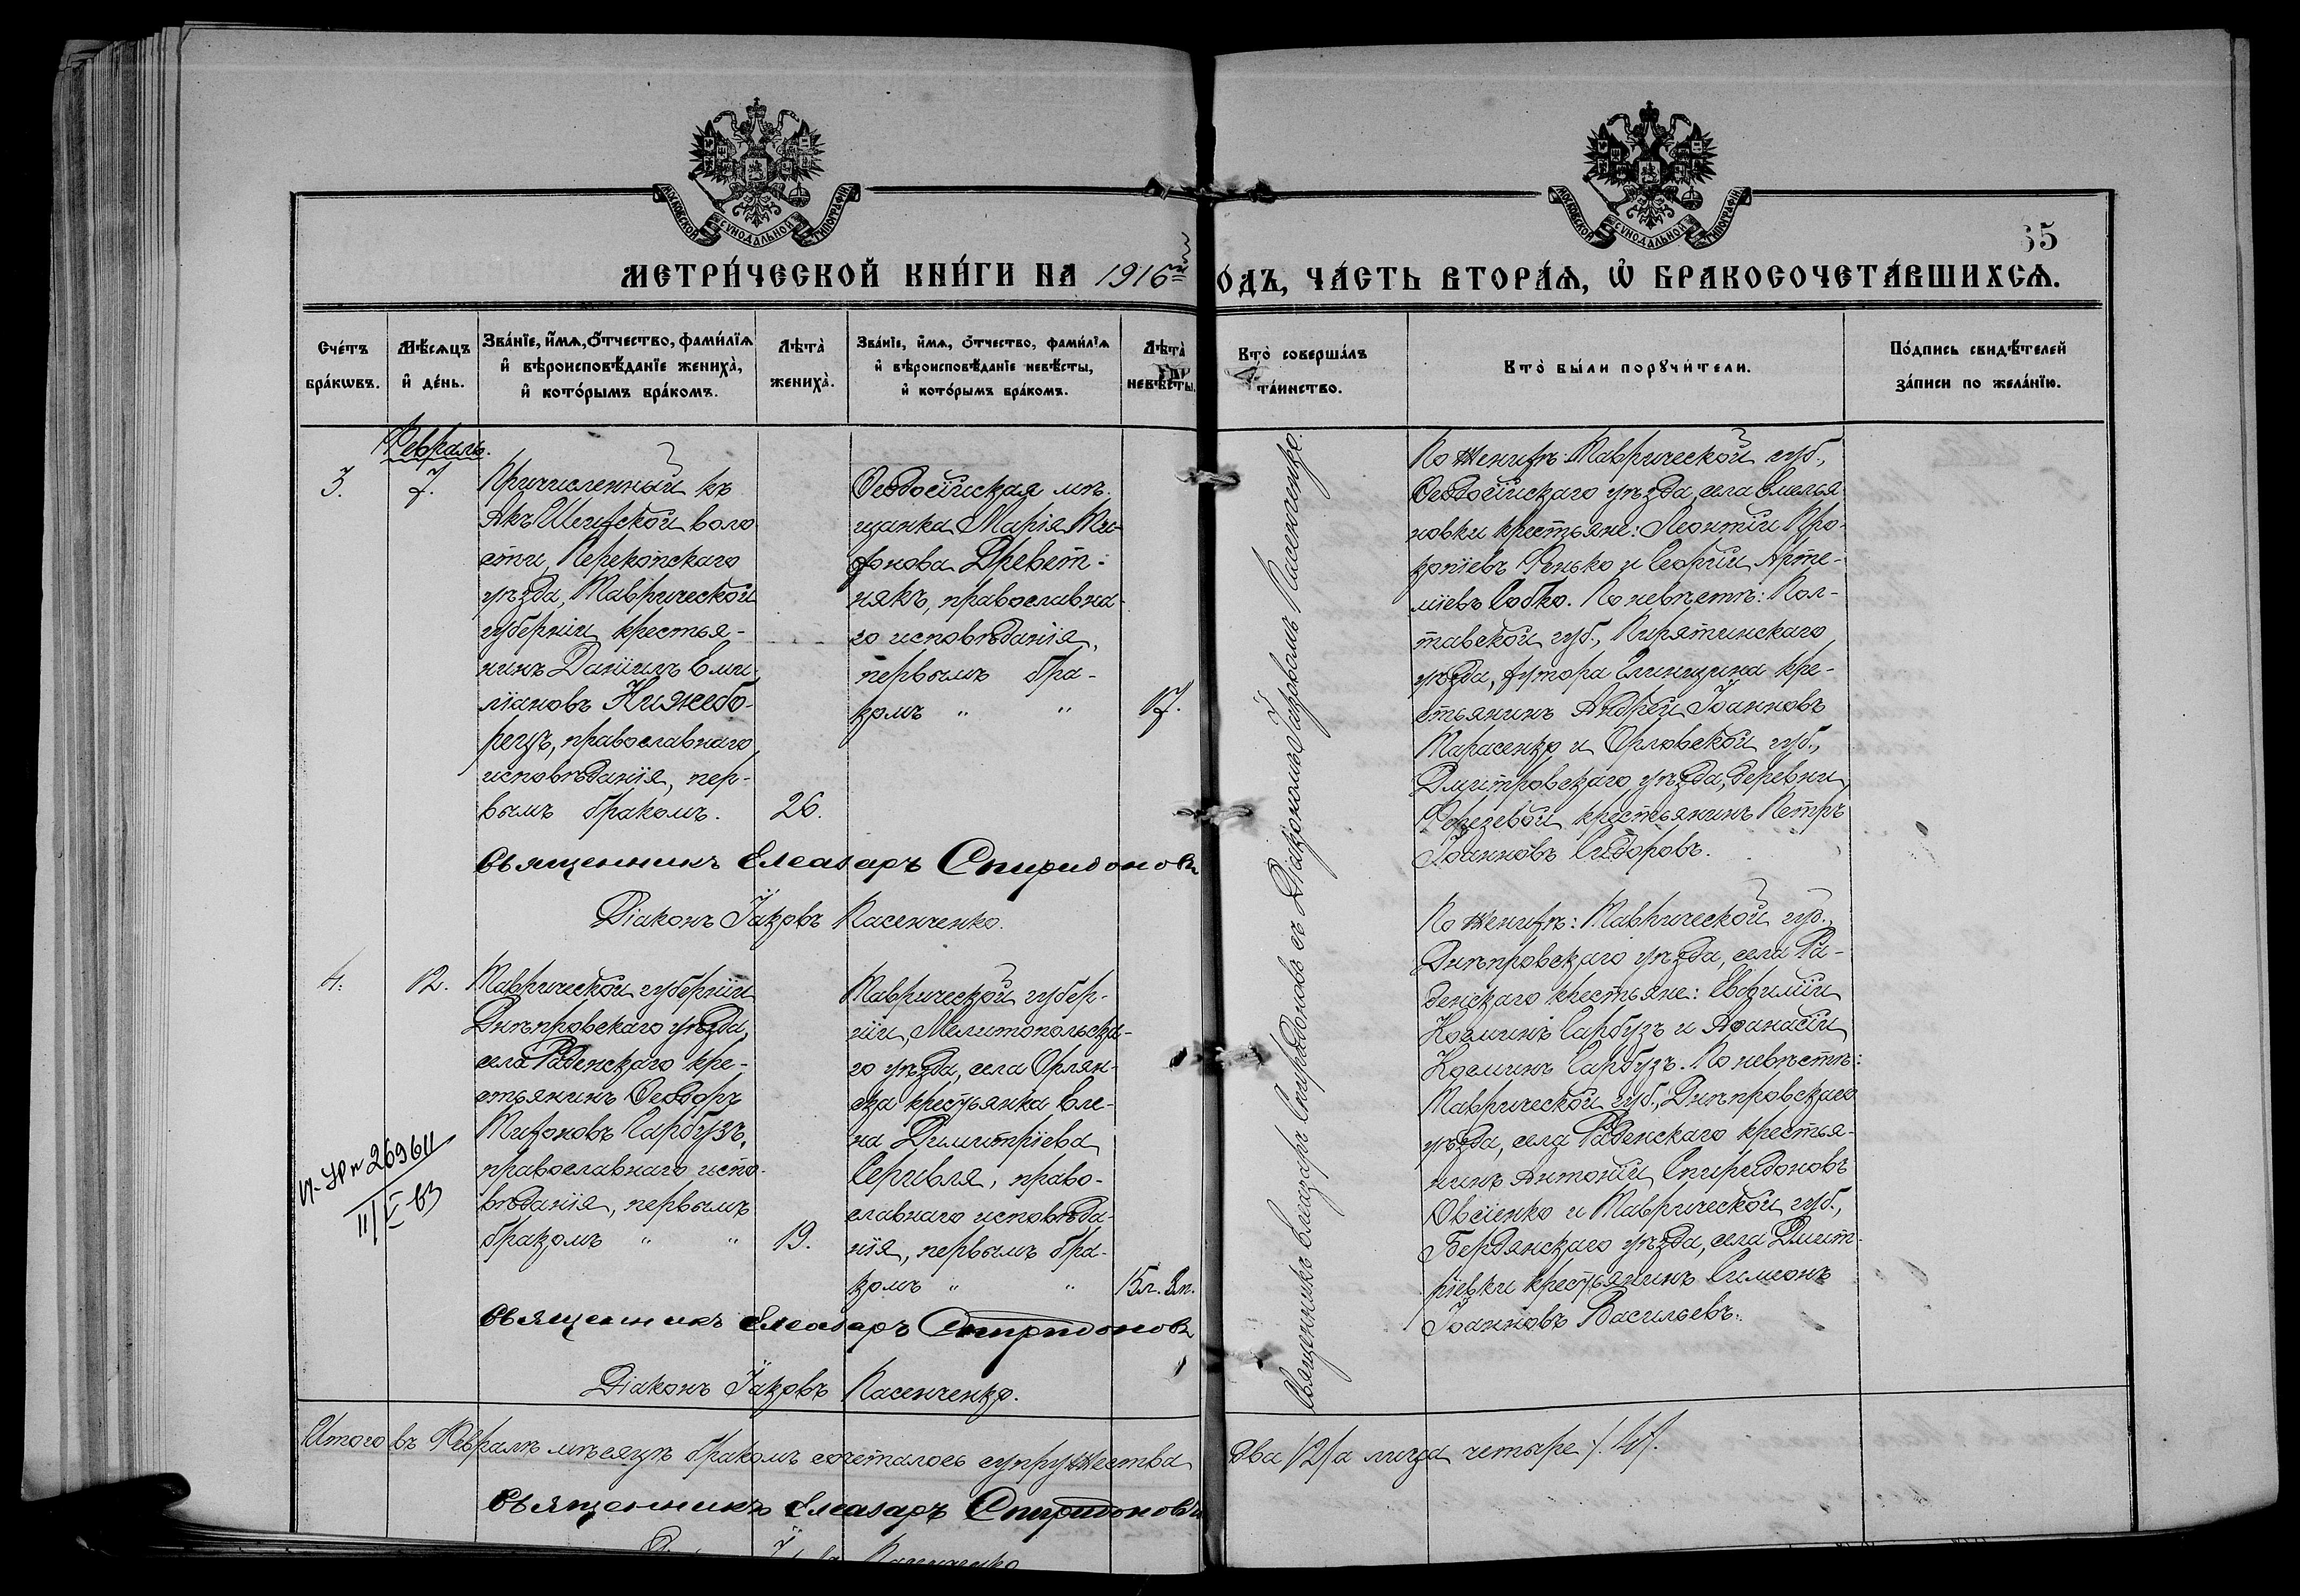 МОСКОВСКОЙ СѴНОДАЛЬНОЙ ТИПОГРАФІИ
МОСКОВСКОЙ СѴНОДАЛЬНОЙ ТИПОГРАФІИ
65
МЕТРИ́ЧЕСКОЙ КНИ́ГИ НА 1916й
ОДЪ, ЧА́СТЬ ВТОРА́Ѧ, Ѽ БРАКОСОЧЕТА́ВШИХСѦ.
Сче́тъ бра́кѡвъ.
Мѣ́сѧцъ и҆ де́нь.
Зва́нїе, и҆́мѧ, ѻ҆́тчество, фами́лїѧ
и҆ вѣроисповѣ́данїе жениха̀,
и҆ кото́рымъ бра́комъ.
Лѣта̀ жениха̀.
Зва́нїе, и҆́мѧ, ѻ҆́тчество, фами́лїѧ
и҆ вѣроисповѣ́данїе невѣ́сты,
и҆ кото́рымъ бра́комъ.
Лѣта̀ невѣ́сты.
Кто̀ соверша́лъ та́инство.
Кто̀ бы́ли порꙋчи́тели.
По́дпись свидѣ́телей
за́писи по жела́нїю.
Февраль.
3.
7.
Причисленный къ
Акъ-Шеихской воло
сти, Перекопскаго
уѣзда, Таврической
губерніи крестья-
нинъ Даніилъ Еми
ліановъ Нижебо-
рецъ, православнаго
исповѣданія, пер-
вымъ бракомъ.
26.
Ѳеодосійская мѣ-
щанка Марія Ти-
хонова Древет-
някъ, православна-
го исповѣданія,
первымъ бра-
комъ " "
17.
Священникъ Елеазаръ Спиридоновъ съ Діакономъ Іаковомъ Пасенченко.
По женихѣ: Таврической губ.,
Ѳеодосійскаго уѣзда, села Емелья
новки крестьяне: Леонтій Про-
копіевъ Сенько и Георгій Арте-
міевъ Собко. По невѣстѣ: Пол-
тавской губ., Пирятинскаго
уѣзда, хутора крe-
стьянинъ Андрей Іоанновъ
Тарасенко и Орловской губ.,
Дмитровскаго уѣзда, деревни
крестьянинъ Петръ
Іоанновъ Сидоровъ.
Священникъ Елеазаръ Спиридоновъ
Діаконъ Іаковъ Пасенченко.
4.
12.
Таврической губерніи
Днѣпровскаго уѣзда,
села Раденскаго кре-
стьянинъ Ѳеодоръ
Тихоновъ Гарбузъ,
православнаго испо-
вѣданія, первымъ
бракомъ " "
19.
Таврической губер-
ніи, Мелитопольска-
го уѣзда, села Орлян-
ска крестьянка Еле-
на Димитріева
Сергивля, право-
славнаго исповѣда-
нія, первымъ бра-
комъ " "
15л. 8м.
По женихѣ: Таврической губ.,
Днѣпровскаго уѣзда, села Ра-
денскаго крестьяне: Евфимій
Косминъ Гарбузъ и Аѳанасій
Косминъ Гарбузъ. По невѣстѣ:
Таврической губ., Днѣпровскаго
уѣзда, села Раденскаго крестья-
нинъ Антоній Спиридоновъ
Овсіенко и Таврической губ.,
Бердянскаго уѣзда, села Дмит-
ріевки крестьянинъ Симеонъ
Іоанновъ Васильевъ.
Священникъ Елеазаръ Спиридоновъ
Діаконъ Іаковъ Пасенченко.
Итого въ Февралѣ мѣсяцѣ бракомъ сочеталось супружества два /2/ а лица четыре /4/.
Священникъ Елеазаръ Спиридоновъ